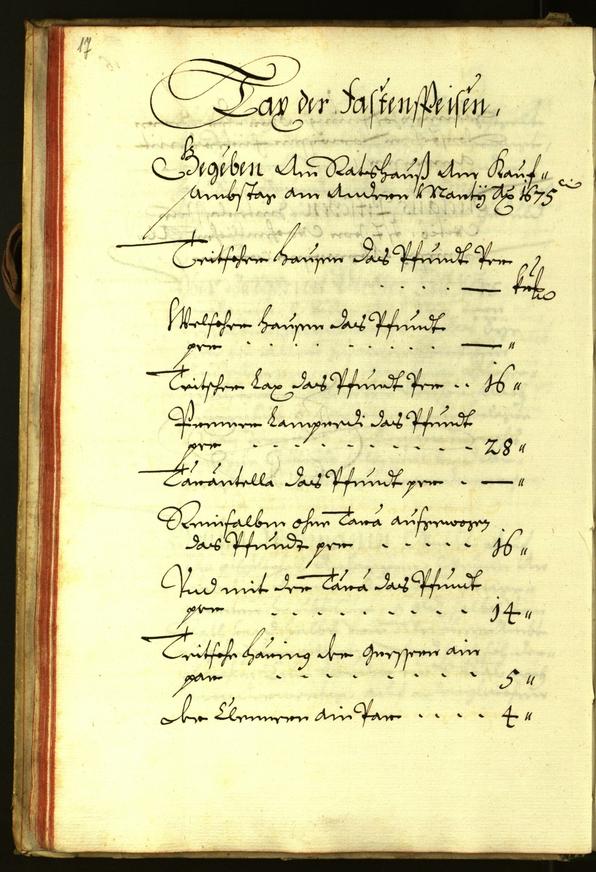 17
Tax der Fastenspeisen.
Gegeben Am Rathshauß Am Kauf-
Ambstag am Andern Marty Ao 1675
Teitscher hausen das Pfundt Per
. . . . — kr
Welscher hausen das Pfundt
per . . . . . . . . — "
Teitscher Lax das Pfundt Per . . 16 "
Lamperdi das Pfundt
per . . . . . . . . . . 28 "
Tarantella das Pfundt per . — "
Reinfalben ohne Tara aufgewogen
das Pfundt per . . . . . 16 "
Und mit der Tara das Pfundt
per . . . . . . . . 14 "
Teitsche häring der gressern ain
par . . . . . . . . 5 "
der Clennern ain Par . . . . 4 "